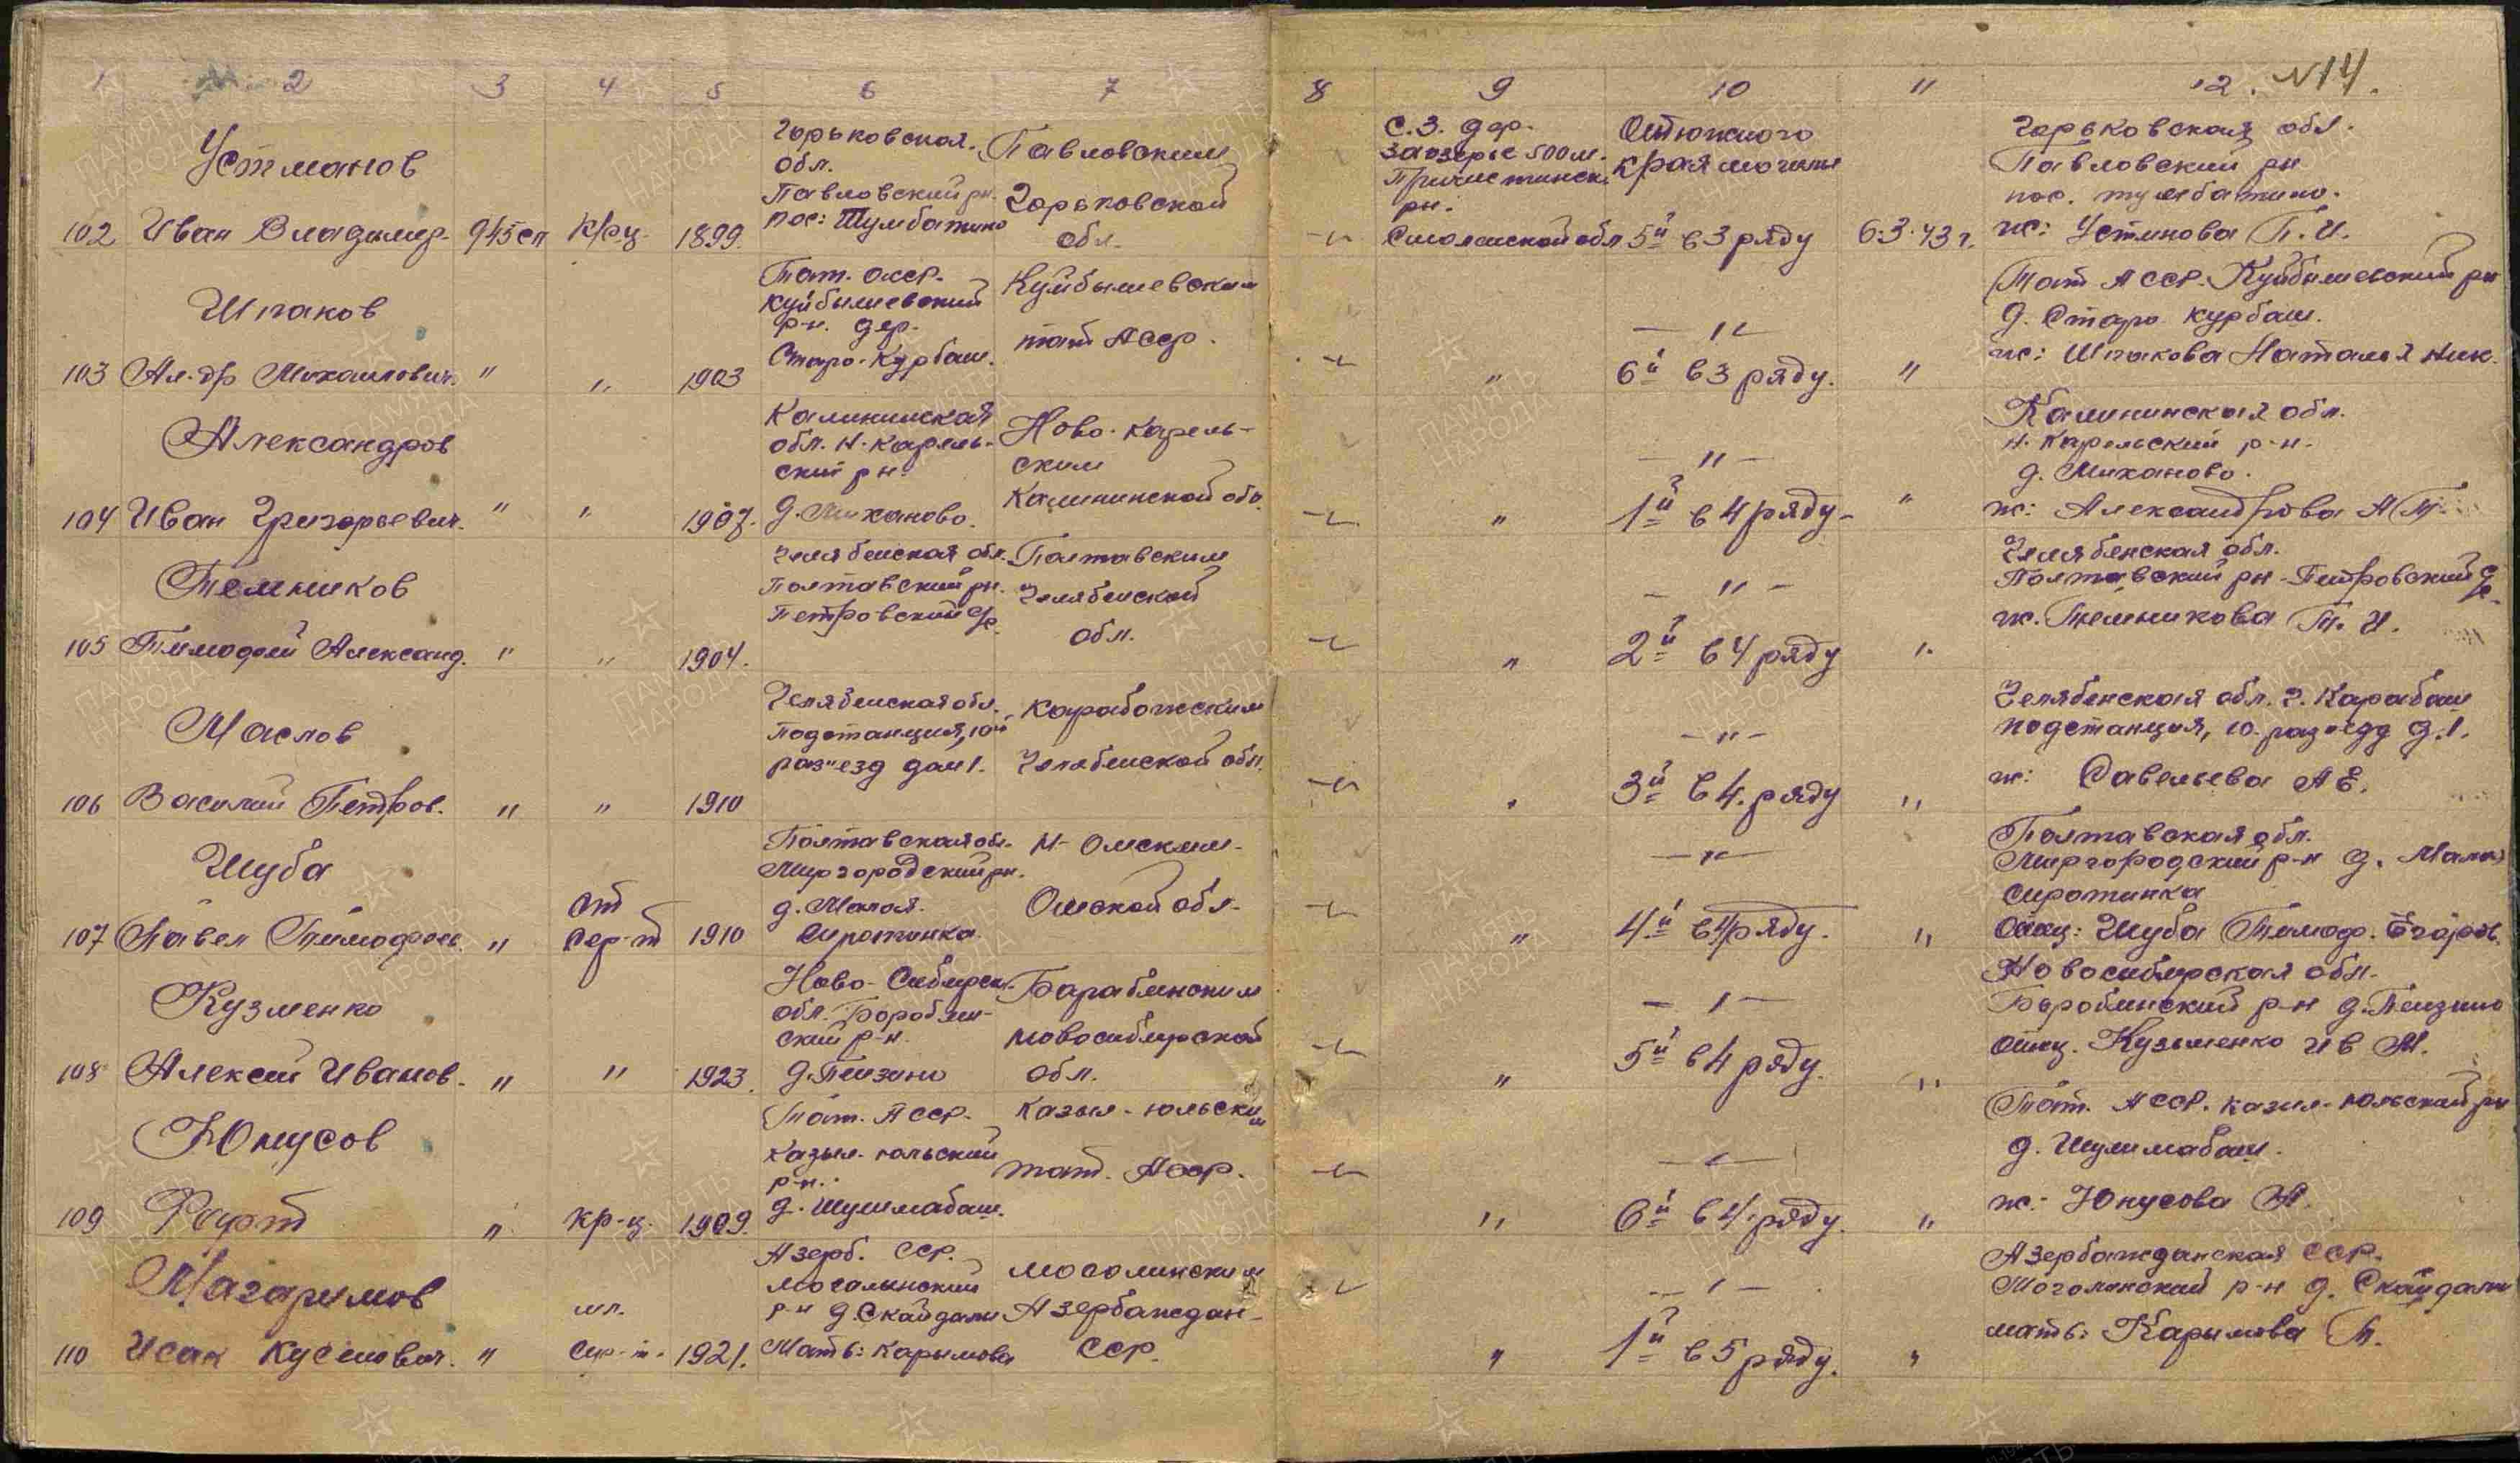 1 2 3 4 5 6 7 8 9 10 11 12. N14.
Устманов
102 Иван Владимир. 945 сп К/рц. 1899.
Горьковская.
обл.
Павловский рн.
пос: Тумботино
Павловским
Горьковской
обл.
С.З. дер.
Заозерье 500 м.
Пречистинск.
рн.
Смоленской обл
От южного
края могилы
5й в 3 ряду
6.3.43 г.
Горьковская обл.
Павловский рн
пос. тумбатино.
ж: Устинова П.И.
Шпаков
103 Ал-др Михаилович. " " 1903
Тат. аССР.
Куйбышевский
р-н. дер.
Старо-Курбаш.
Куйбышевским
тат АССР.
"
— " —
6й в 3 ряду.
"
Тат АССР. Куйбышевский рн
д. Старо курбаш.
ж: Шпакова Наталья Ник.
Александров
104 Иван Григорьевич. " " 1907.
Калининская
обл. Н-Карель-
ский рн.
д. Миханово.
Ново-Карель-
ским
Калининской обл.
"
— " —
1й в 4 ряду-
"
Калининская обл.
Н. Карельский р-н.
д. Миханово.
ж: Александрова А
Темников
105 Тимофей Александ. " " 1904.
Челябенская обл.
Полтавский рн.
Петровский
Полтавским
Челябенской
обл.
"
— " —
2й в 4 ряду
"
Челябенская обл.
Полтавский рн-Петровский
ж. Темникова Т. И.
Маслов
106 Василий Петров. " " 1910
Челябенская обл.
Подстанция, 10й
раз"езд дом 1.
Карабашским
Челябенской обл.
"
— " —
3й в 4. ряду
"
Челябенская обл. г. Карабаш
подстанция, 10. раз"езд д.1.
ж: Савельева А Е.
Шуба
107 Павел Тимофеев. " ст сер-т 1910
Полтавская обл.
Миргородский рн.
д. Малая.
Сиротинка
Н-Омским-
Омской обл-
"
— " —
4й в 4 ряду.
"
Полтавская обл.
Миргородский р-н д. Малая
сиротинка
Отец: Шуба Тимоф. Егоров.
Кузменко
108 Алексей Иванов. " " 1923.
Ново-Сибирск.
обл. Бороблин-
ский р-н.
д. Пензино
Барабинским
новосибирской
обл.
"
— " —
5й в 4 ряду.
"
Новосибирская обл.
Боробинский р-н д. Пензино
Отец. Кузьменко Ив М.
Юнусов
109 Рауфт " кр-ц. 1909.
Тат. АССР.
Казыл-юльский
р-н.
д. Шушмабаш.
Казыл-юльским
тат. АССР.
"
— " —
6й в 4 ряду.
"
Тат. АССР. казыл-юльский рн
д. Шушмабаш.
ж: Юнусова
Магаримов
110 Исак Кусенович. " мл. сер-т. 1921.
Азерб. ССР.
могалынский
р-н д. Скайдали
Мать: Карымова
мосолинским
Азербаждан-
ССР.
"
— " —
1й в 5 ряду.
"
Азербажданская ССР.
Моголинский р-н д. Скайдали
мать: Карымова Т.